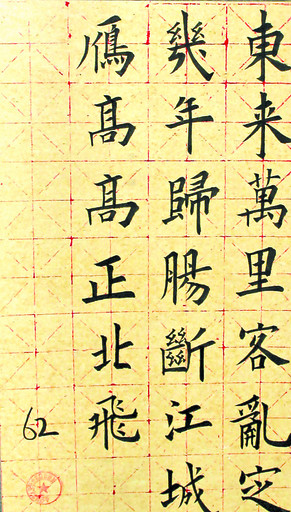 東来萬里客亂定
幾年歸腸斷江城
鴈高高正北飛
62